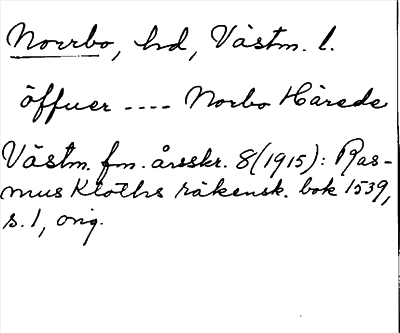 Norrbo, hd, Västm. l.
öffuer ---- Norbo Härede
Västm. fm. årsskr. 8(1915): Ras-
mus Kloths räkensk. bok 1539,
s. 1, orig.